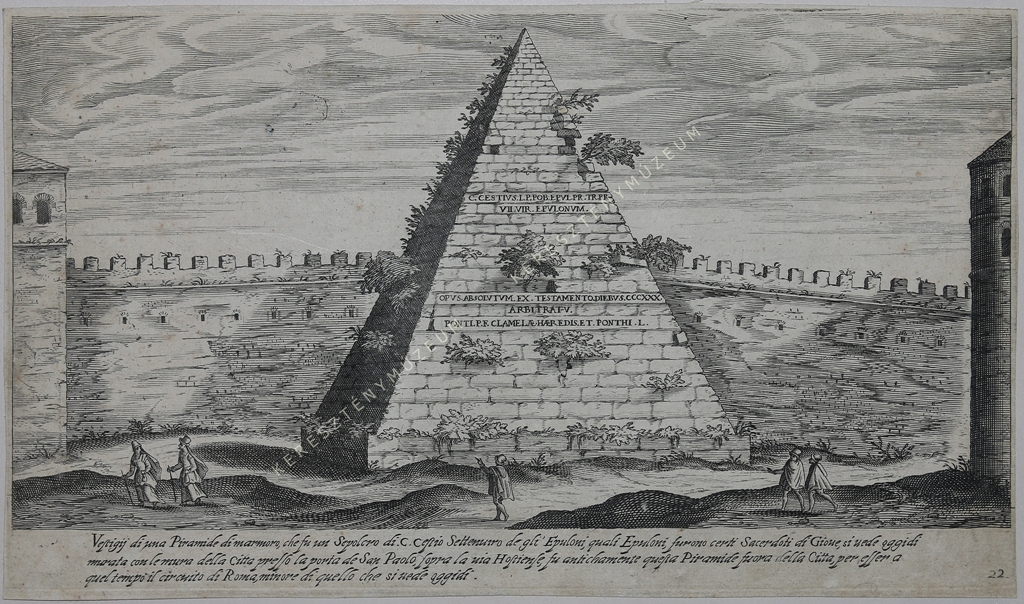 C. CESTIVS. L. P. POB. EPVL. PR. TR. PL
VII. VIR. EPVLONVM.
OPVS. ABSOLVTVM. EX. TESTAMENTO. DIEBVS. CCCXXX.
ARBITRATV.
PONTI. P. F. CLAMELÆ. HÆREDIS. ET. PONTHI. L.
KERESZTÉNY MÚZEUM
KERESZTÉNY MÚZEUM
Vestigij di una Piramide di marmoro, che fu un Sepolcro di C. Cestio Settenviro de gli Epuloni, quali Epuloni furono certi Sacerdoti di Giove, si vede oggidi
murata con le mura della Citta presso la porta de San Paolo, sopra la via Hostiense, fu antichamente questa Piramide fuora della Citta, per esser a
quel tempo il circuito di Roma, minore di quello che si vede oggidi.
22